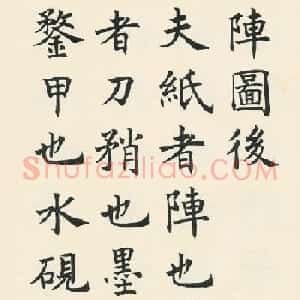 陣圖後
夫紙者陣也
者刀矟也墨
鍪甲也水硯
Shufaziliao.com